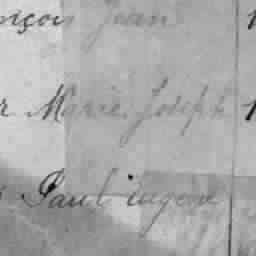 nçois Jean
r Marie Joseph
Paul Eugène